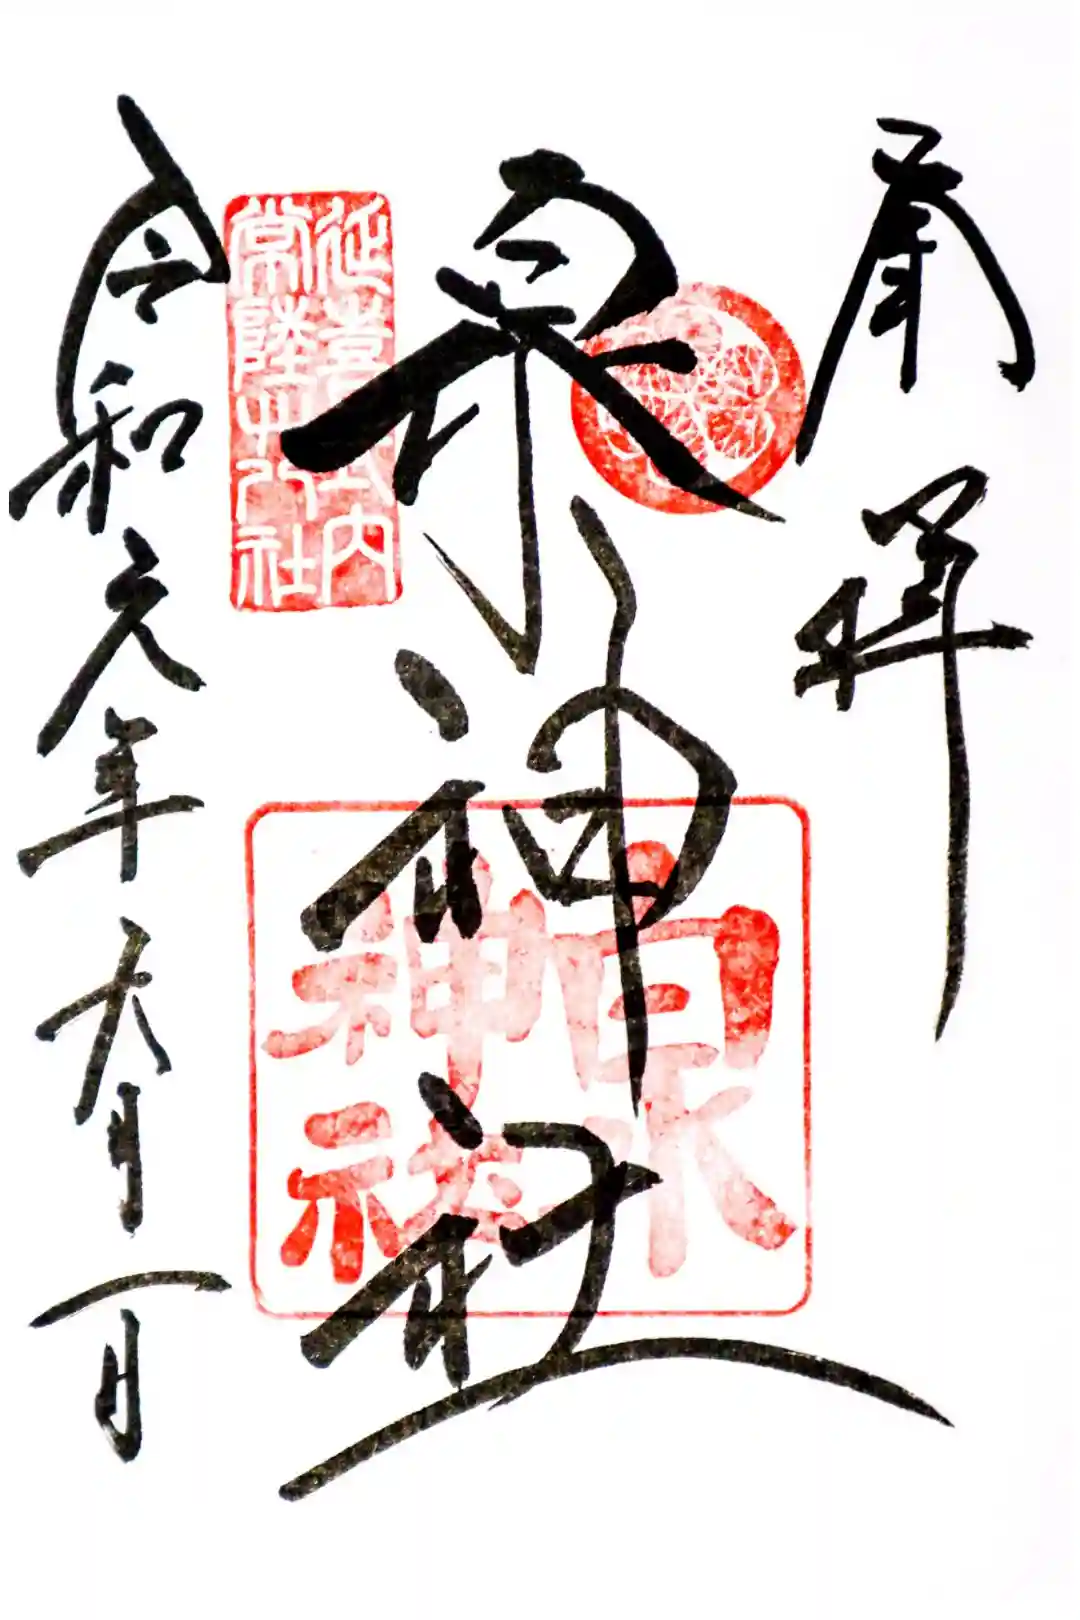 奉拝
泉神社
令和元年六月一日
延喜式内
常陸廿八社
泉
神社